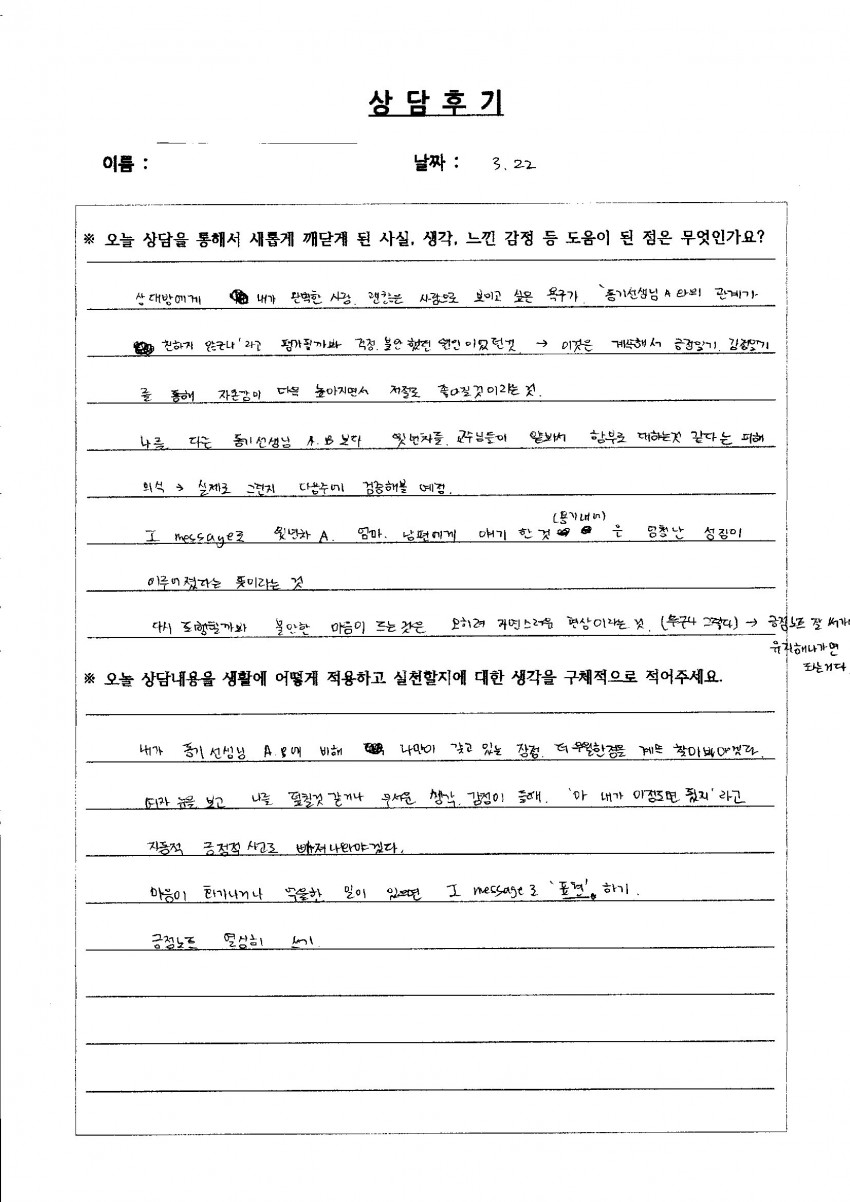 상 담 후 기
이름 :
날짜 : 3. 22
※ 오늘 상담을 통해서 새롭게 깨닫게 된 사실, 생각, 느낀 감정 등 도움이 된 점은 무엇인가요?
상대방에게 내가 완벽한 사람, 괜찮은 사람으로 보이고 싶은 욕구가, '동기선생님 A와의 관계가
친하지 않구나' 라고 평가할까봐 걱정, 불안했던 원인이었던것 → 이것은 계속해서 긍정일기, 감정일기
를 통해 자존감이 더욱 높아지면서 저절로 좋아질것이라는 것.
나를 다른 동기선생님 A, B 보다 윗년차들, 교수님들이 얕봐서 함부로 대하는것 같다는 피해
의식 → 실제로 그런지 다음주에 검증해볼 예정.
I message로 윗년차 A, 엄마, 남편에게 얘기 한 것 (용기내어) 은 엄청난 성장이
이루어졌다는 뜻이라는 것
다시 퇴행할까봐 불안한 마음이 드는것은 오히려 자연스러운 현상이라는 것. (누구나 그렇다) → 긍정노트 잘 써가며
유지해나가면
되는거다
※ 오늘 상담내용을 생활에 어떻게 적용하고 실천할지에 대한 생각을 구체적으로 적어주세요.
내가 동기 선생님 A, B에 비해 나만이 갖고 있는 장점, 더 우월한점을 계속 찾아봐야겠다.
타자 눈을 보고 나를 헤칠것 같거나 무서운 생각, 감정이 들때, '아 내가 이정도면 됐지' 라고
자동적 긍정적 사고로 빠져나와야겠다.
마음이 화가나거나 억울한 일이 있으면 I message로 '표현' 하기.
긍정노트 열심히 쓰기